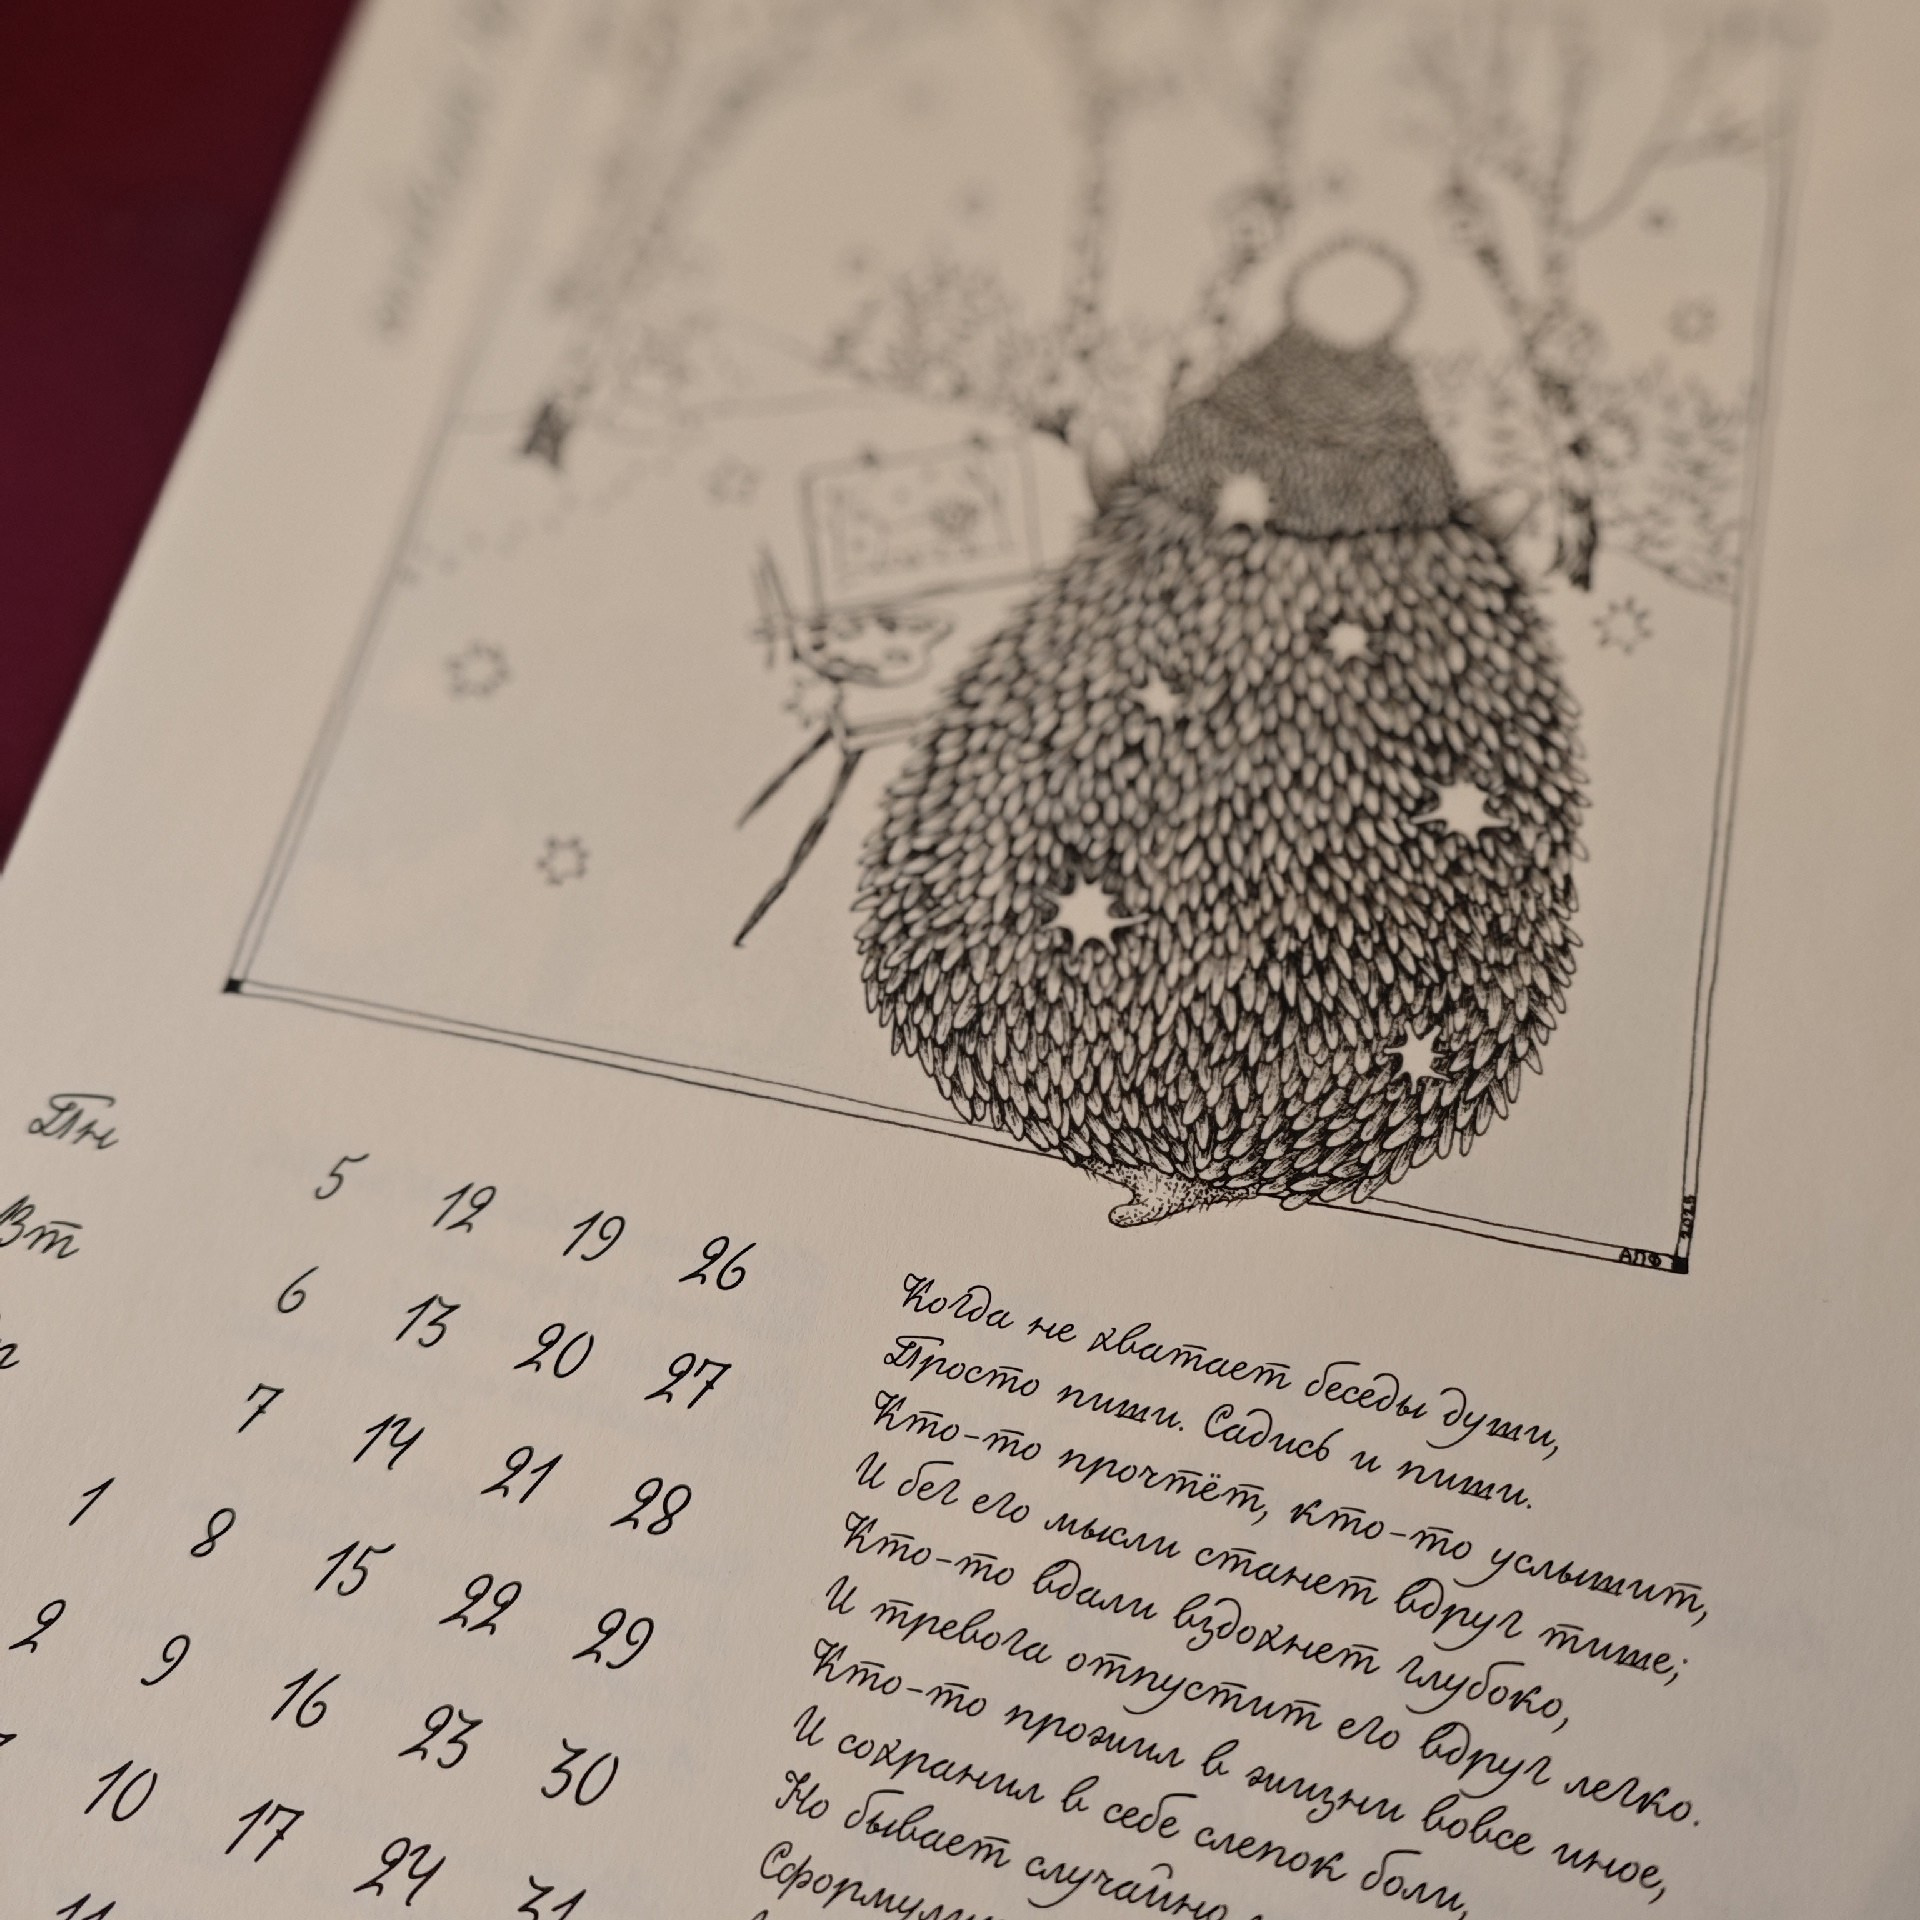 2025
АЛФ
Пн 5 12 19 26
Вт 6 13 20 27
7 14 21 28
1 8 15 22 29
2 9 16 23 30
10 17 24 31
11
Когда не хватает беседы души,
Просто пиши. Садись и пиши.
Кто-то прочтёт, кто-то услышит,
И бег его мысли станет вдруг тише;
Кто-то вдали вздохнет глубоко,
И тревога отпустит его вдруг легко.
Кто-то прожил в жизни вовсе иное,
И сохранил в себе слепок боли,
Но бывает случайно